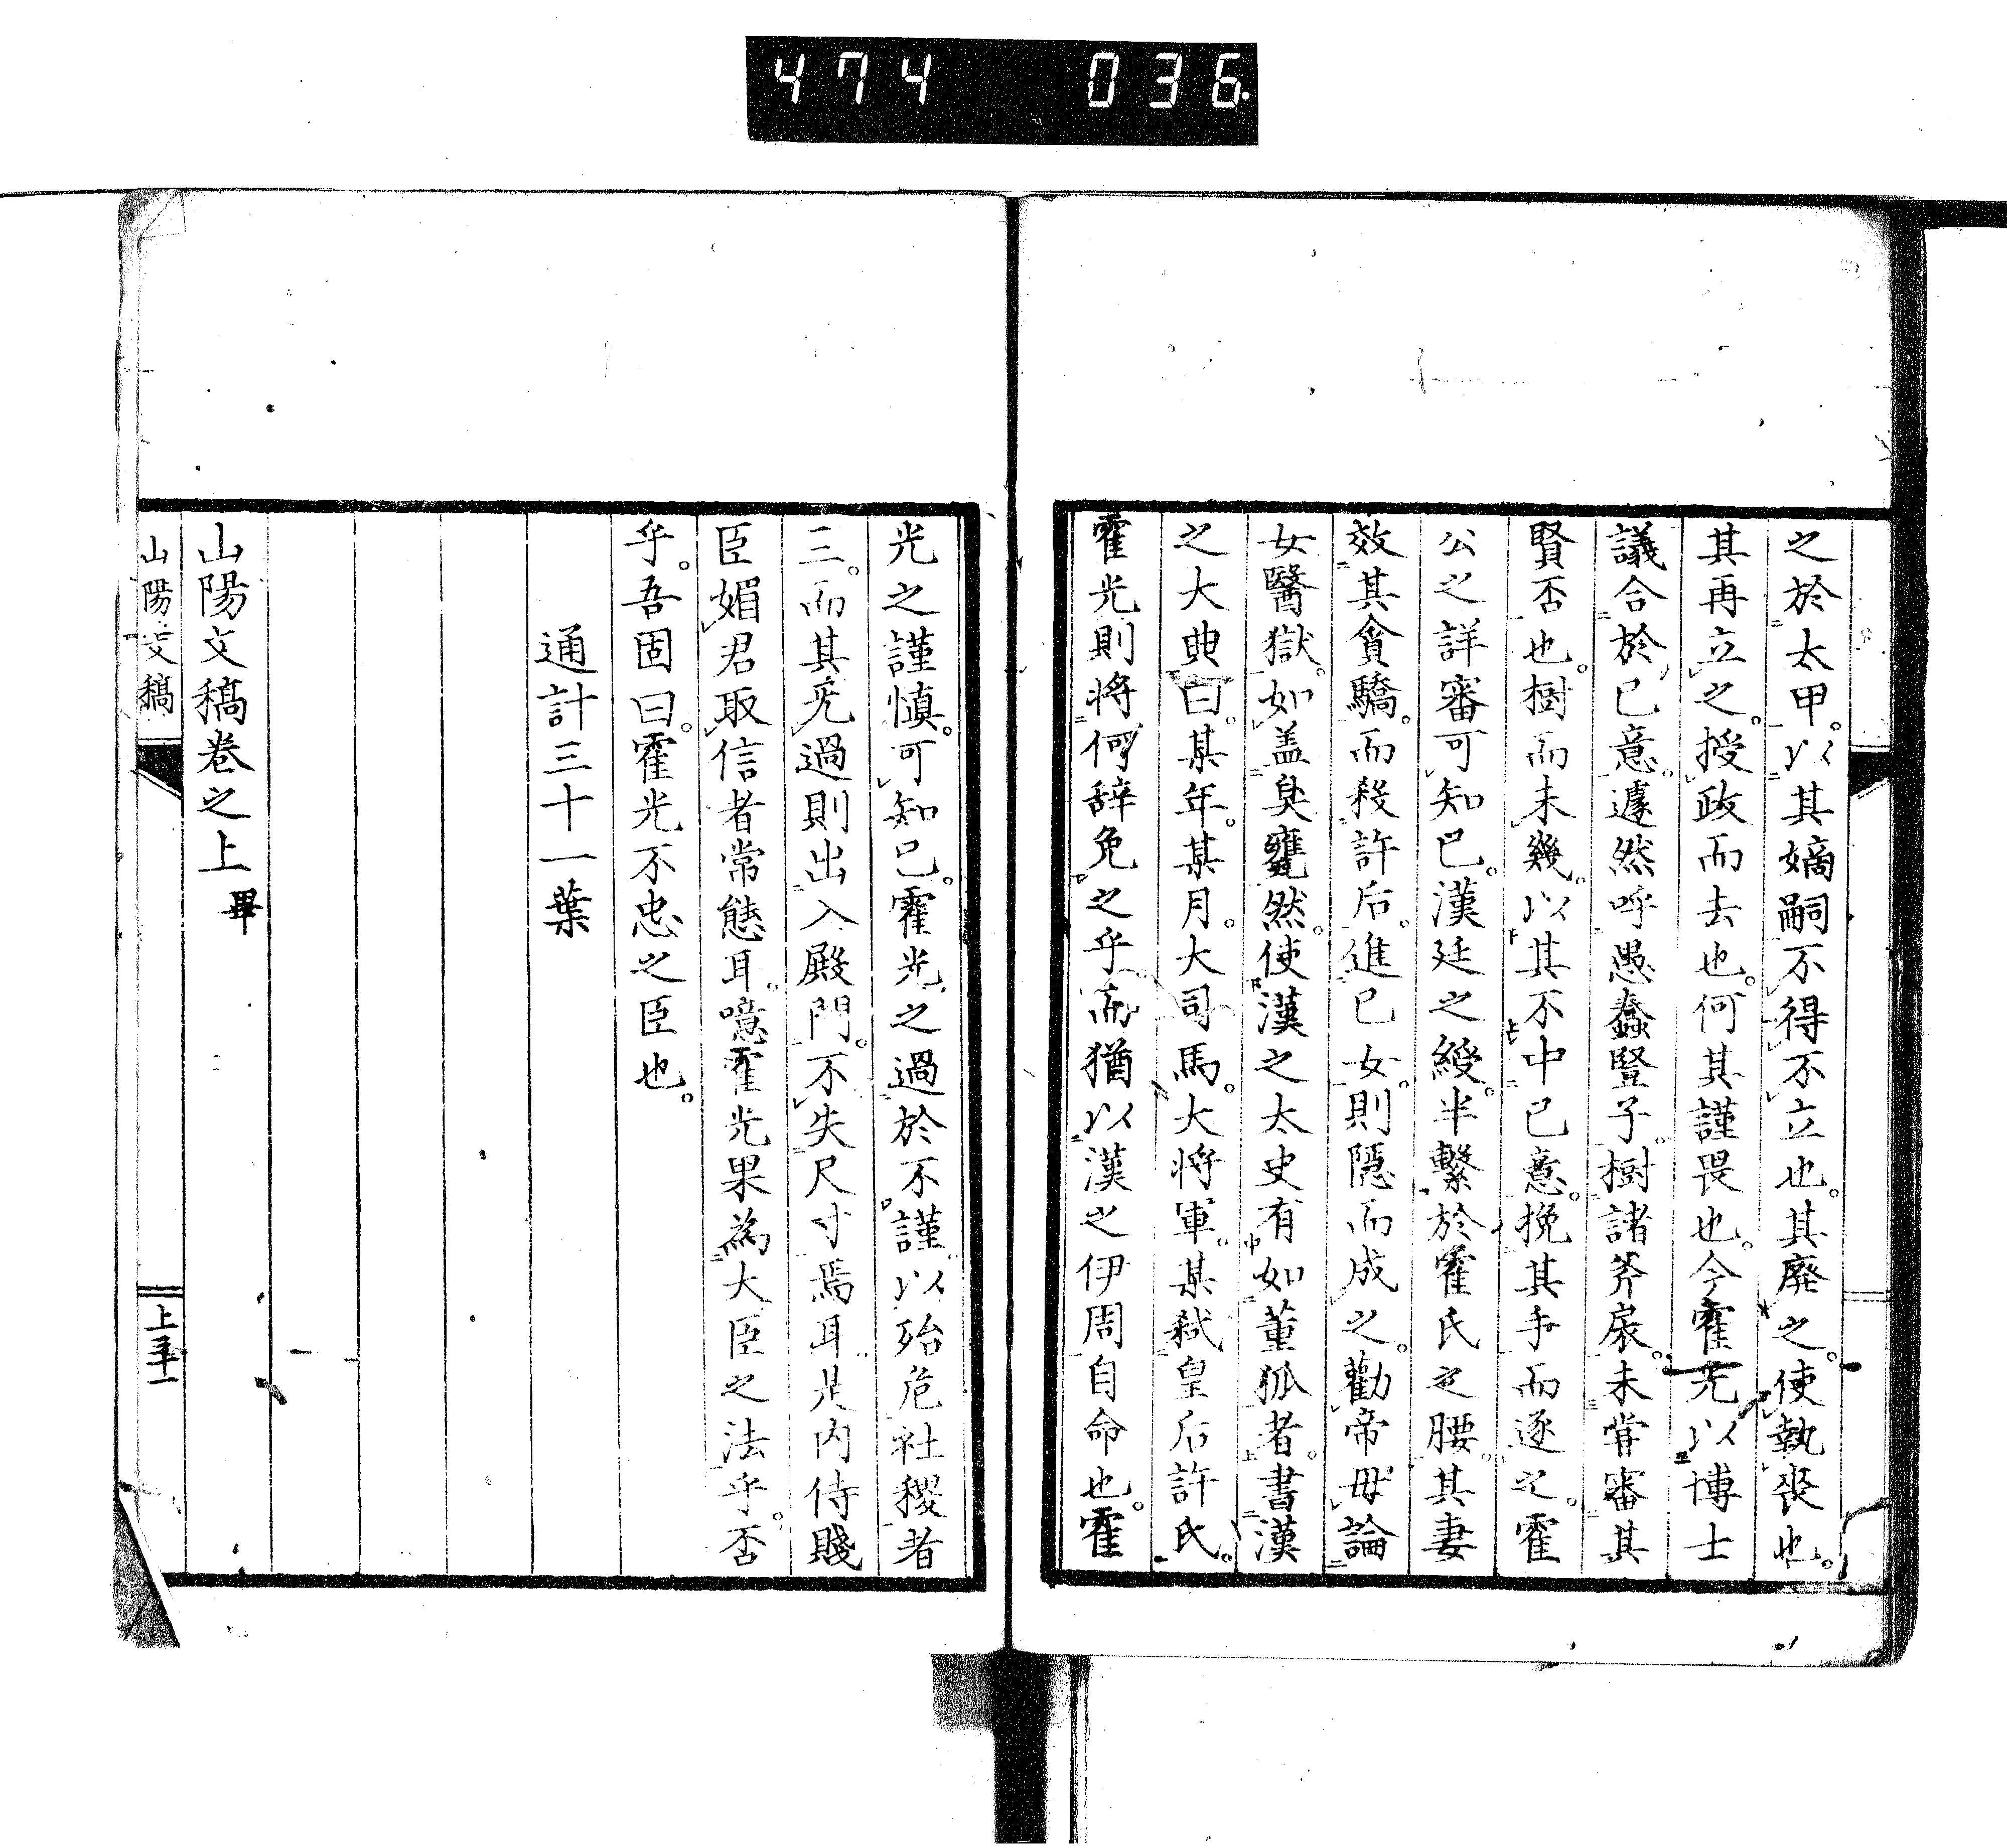 474 036
之於太甲。以其嫡嗣不得不立也。其廢之。使執喪也。
其再立之。授政而去也。何其謹畏也。今霍光以博士
議合於已意。遽然呼愚蠢豎子。樹諸斧扆。未嘗審其
賢否也。樹而未幾。以其不中已意。挽其手而逐之。霍
公之詳審可知已。漢廷之綬。半繫於霍氏之腰。其妻
效其貪驕。而殺許后。進已女。則隱而成之。勸帝毋論
女醫獄。如盖臭甕然。使漢之太史有如董狐者。書漢
之大典曰。某年。某月。大司馬。大将軍。某弑皇后許氏。
霍光則将何辞免之乎。而猶以漢之伊周自命也。霍
光之謹慎。可知已。霍光之過於不謹。以殆危社稷者
三。而其充過則出入殿門。不失尺寸焉耳。是内侍賤
臣媚君取信者常態耳。噫霍光果為大臣之法乎。否
乎。吾固曰。霍光不忠之臣也。
通計三十一葉
山陽文稿卷之上 畢
山陽文稿
上三十一